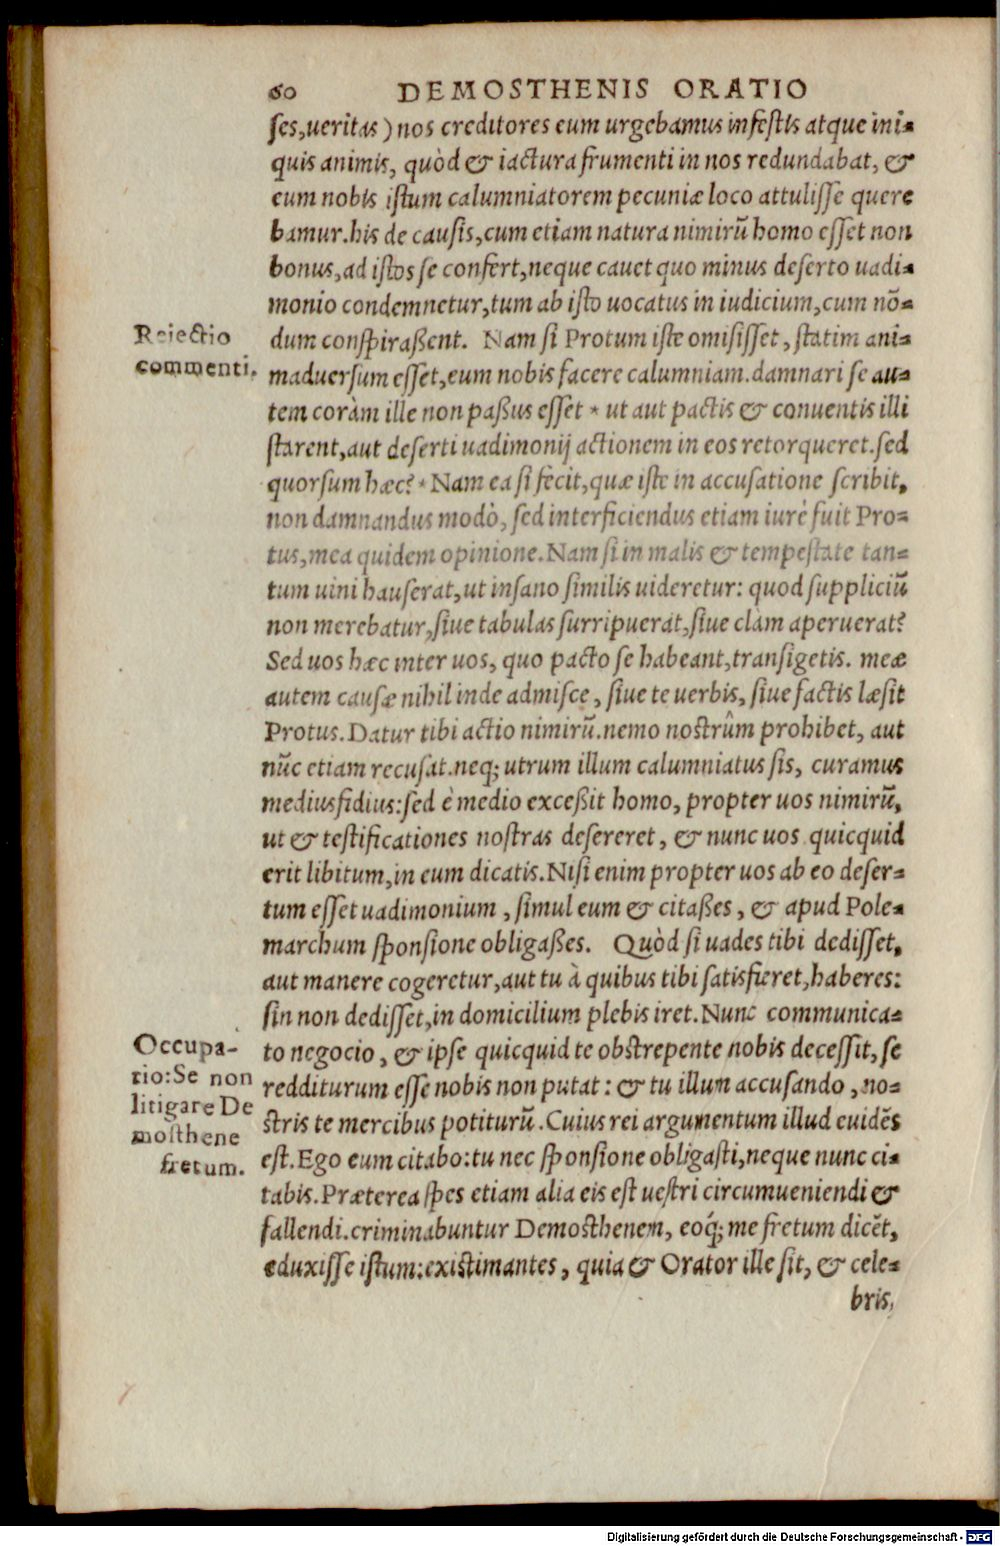 60 DEMOSTHENIS ORATIO
ses,ueritas) nos creditores eum urgebamus infestis atque ini-
quis animis, quòd & iactura frumenti in nos redundabat, &
eum nobis istum calumniatorem pecuniæ loco attulisse quere
bamur. his de causis, cum etiam natura nimirũ homo esset non
bonus, ad istos se confert, neque cauet quo minus deserto uadi-
monio condemnetur, tum ab isto uocatus in iudicium, cum nõ-
Reiectio
commenti.
dum conspiraßent. Nam si Protum iste omisisset, statim ani-
maduersum esset, eum nobis facere calumniam. damnari se au-
tem coràm ille non paßus esset * ut aut pactis & conuentis illi
starent, aut deserti uadimonij actionem in eos retorqueret. sed
quorsum hæc? * Nam ea si fecit, quæ iste in accusatione scribit,
non damnandus modò, sed interficiendus etiam iurè fuit Pro-
tus, mea quidem opinione. Nam si in malis & tempestate tan-
tum uini hauserat, ut insano similis uideretur: quod suppliciũ
non merebatur, siue tabulas surripuerat, siue clàm aperuerat?
Sed uos hæc inter uos, quo pacto se habeant, transigetis. meæ
autem causæ nihil inde admisce, siue te uerbis, siue factis læsit
Protus. Datur tibi actio nimirũ. nemo nostrûm prohibet, aut
nũc etiam recusat. neq; utrum illum calumniatus sis, curamus
mediusfidius: sed è medio exceßit homo, propter uos nimirũ,
ut & testificationes nostras desereret, & nunc uos quicquid
erit libitum, in eum dicatis. Nisi enim propter uos ab eo deser-
tum esset uadimonium, simul eum & citaßes, & apud Pole-
marchum sponsione obligaßes. Quòd si uades tibi dedisset,
aut manere cogeretur, aut tu à quibus tibi satisfieret, haberes:
sin non dedisset, in domicilium plebis iret. Nunc communica-
Occupa-
tio: Se non
litigare De
mosthene
fretum.
to negocio, & ipse quicquid te obstrepente nobis decessit, se
redditurum esse nobis non putat: & tu illum accusando, no-
stris te mercibus potiturũ. Cuius rei argumentum illud euidẽs
est. Ego eum citabo: tu nec sponsione obligasti, neque nunc ci-
tabis. Præterea spes etiam alia eis est uestri circumueniendi &
fallendi. criminabuntur Demosthenem, eoq́; me fretum dicẽt,
eduxisse istum: existimantes, quia & Orator ille sit, & cele-
bris,
Digitalisierung gefördert durch die Deutsche Forschungsgemeinschaft - DFG